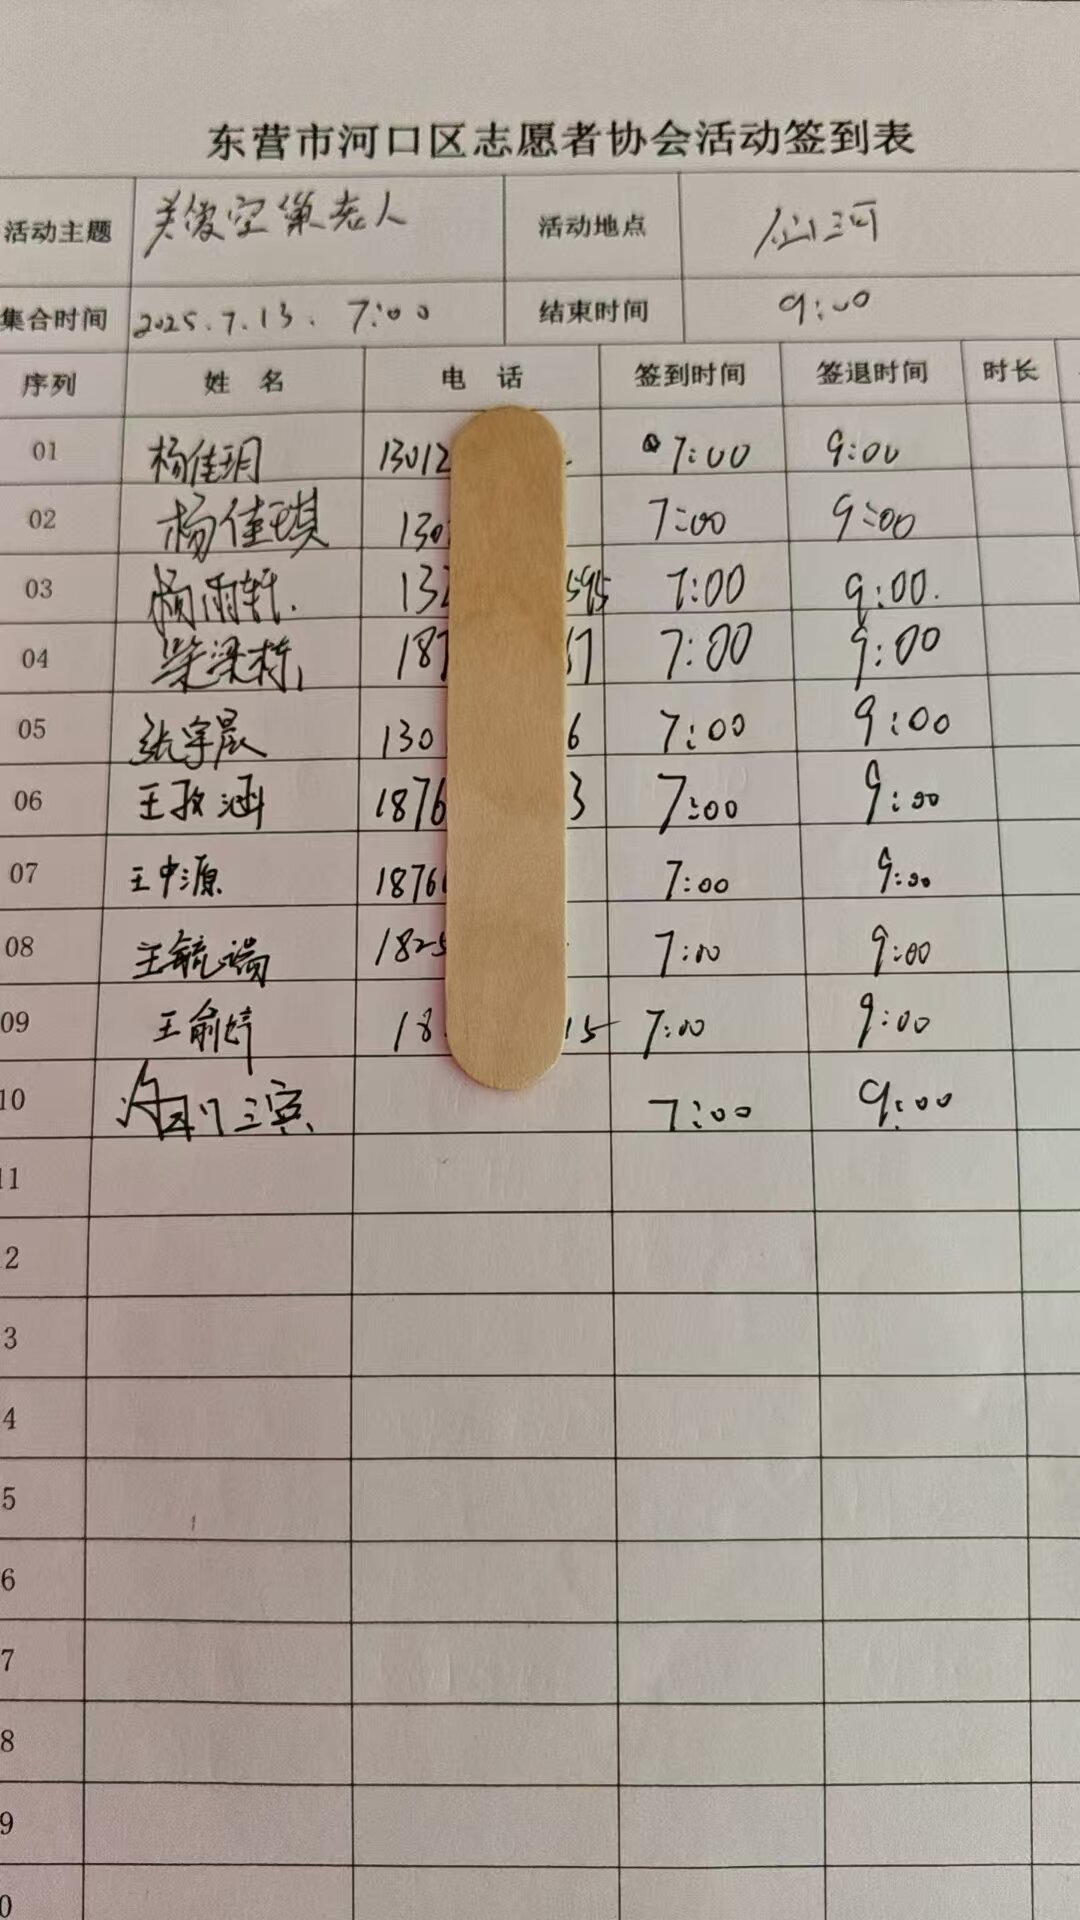 东营市河口区志愿者协会活动签到表
活动主题 关爱空巢老人 活动地点 仙河
集合时间 2025.7.13. 7:00 结束时间 9:00
序列 姓 名 电 话 签到时间 签退时间 时长
01 杨佳玥 13012 7:00 9:00
02 杨佳琪 130 7:00 9:00
03 杨雨轩. 132 595 7:00 9:00.
04 柴梁栋 187 7 7:00 9:00
05 张宇晨 130 6 7:00 9:00
06 王政涵 1876 3 7:00 9:00
07 王中源 1876 7:00 9:00
08 王毓瑞 1825 7:00 9:00
09 王俞婷 18 15 7:00 9:00
10 7:00 9:00
11
2
3
4
5
6
7
8
9
0